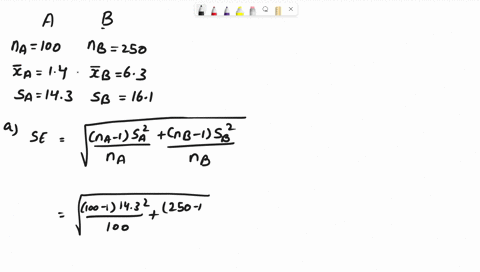 A B
nA = 100 nB = 250
x̄A = 1.4 x̄B = 6.3
SA = 14.3 SB = 16.1
a) SE = √((nA-1) SA² / nA + (nB-1) SB² / nB)
= √((100-1) 14.3² / 100 + (250-1